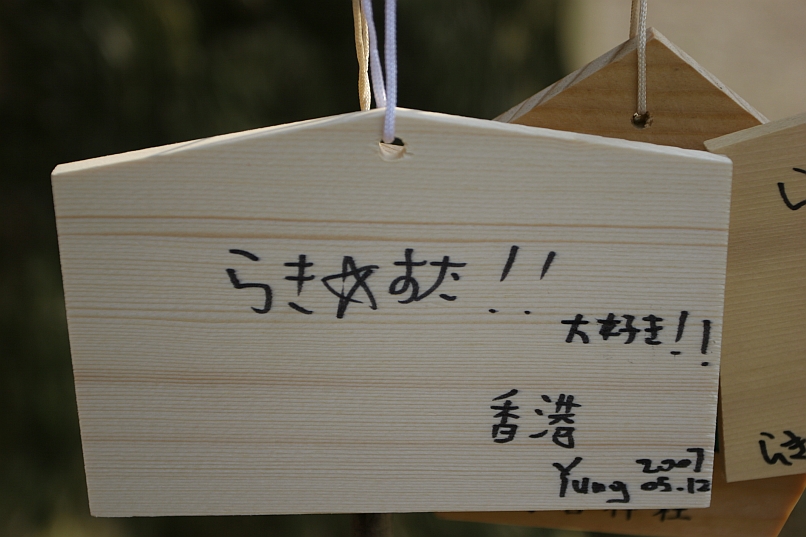 らき☆すた!!
大好き!!
香港
Yung 2007
05.12
らき
神社